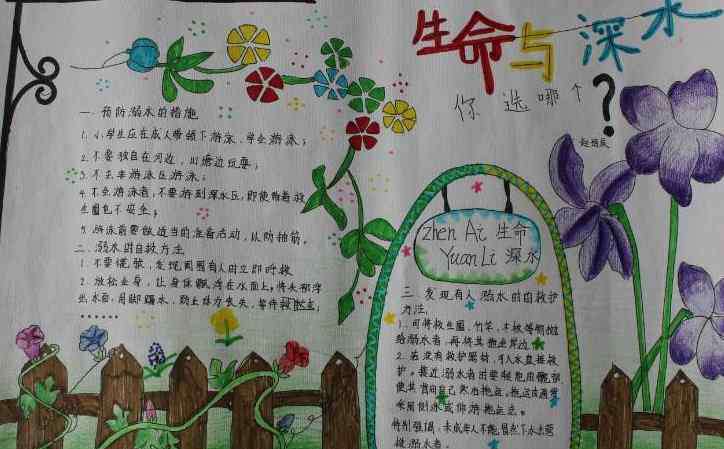 生命与深水
你选哪个?
一.预防溺水的措施
1.小学生应在成人带领下游泳、学会游泳;
2.不要独自在河边、山塘边玩耍;
3.不去非游泳区游泳;
4.不会游泳者,不要游到深水区,即使带着救
生圈也不安全;
5.游泳前要做适当的准备活动,以防抽筋。
二.溺水时的自救方法
1.不要慌张,发现周围有人时立即呼救
2.放松全身,让身体飘浮在水面上,将头部浮
出水面,用脚踢水,防止体力丧失,等待救援;
……
zhen Ai 生命
Yuan Li 深水
三.发现有人溺水时的救护
方法:
1.可将救生圈、竹竿、木板等物抛
给溺水者,再将其拖至岸边;
2.若没有救护器材,可入水直接救
护。接近溺水者时要
使其背向自己然后拖运。拖运时通常
采用侧泳或仰泳拖运法。
特别强调:未成年人不能下水去营
救溺水者。